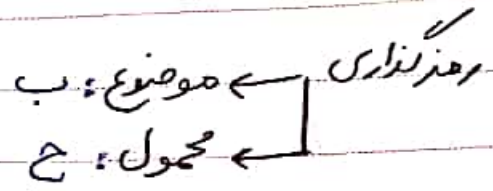 رمزگذاری ← موضوع: ب
← محمول: ح